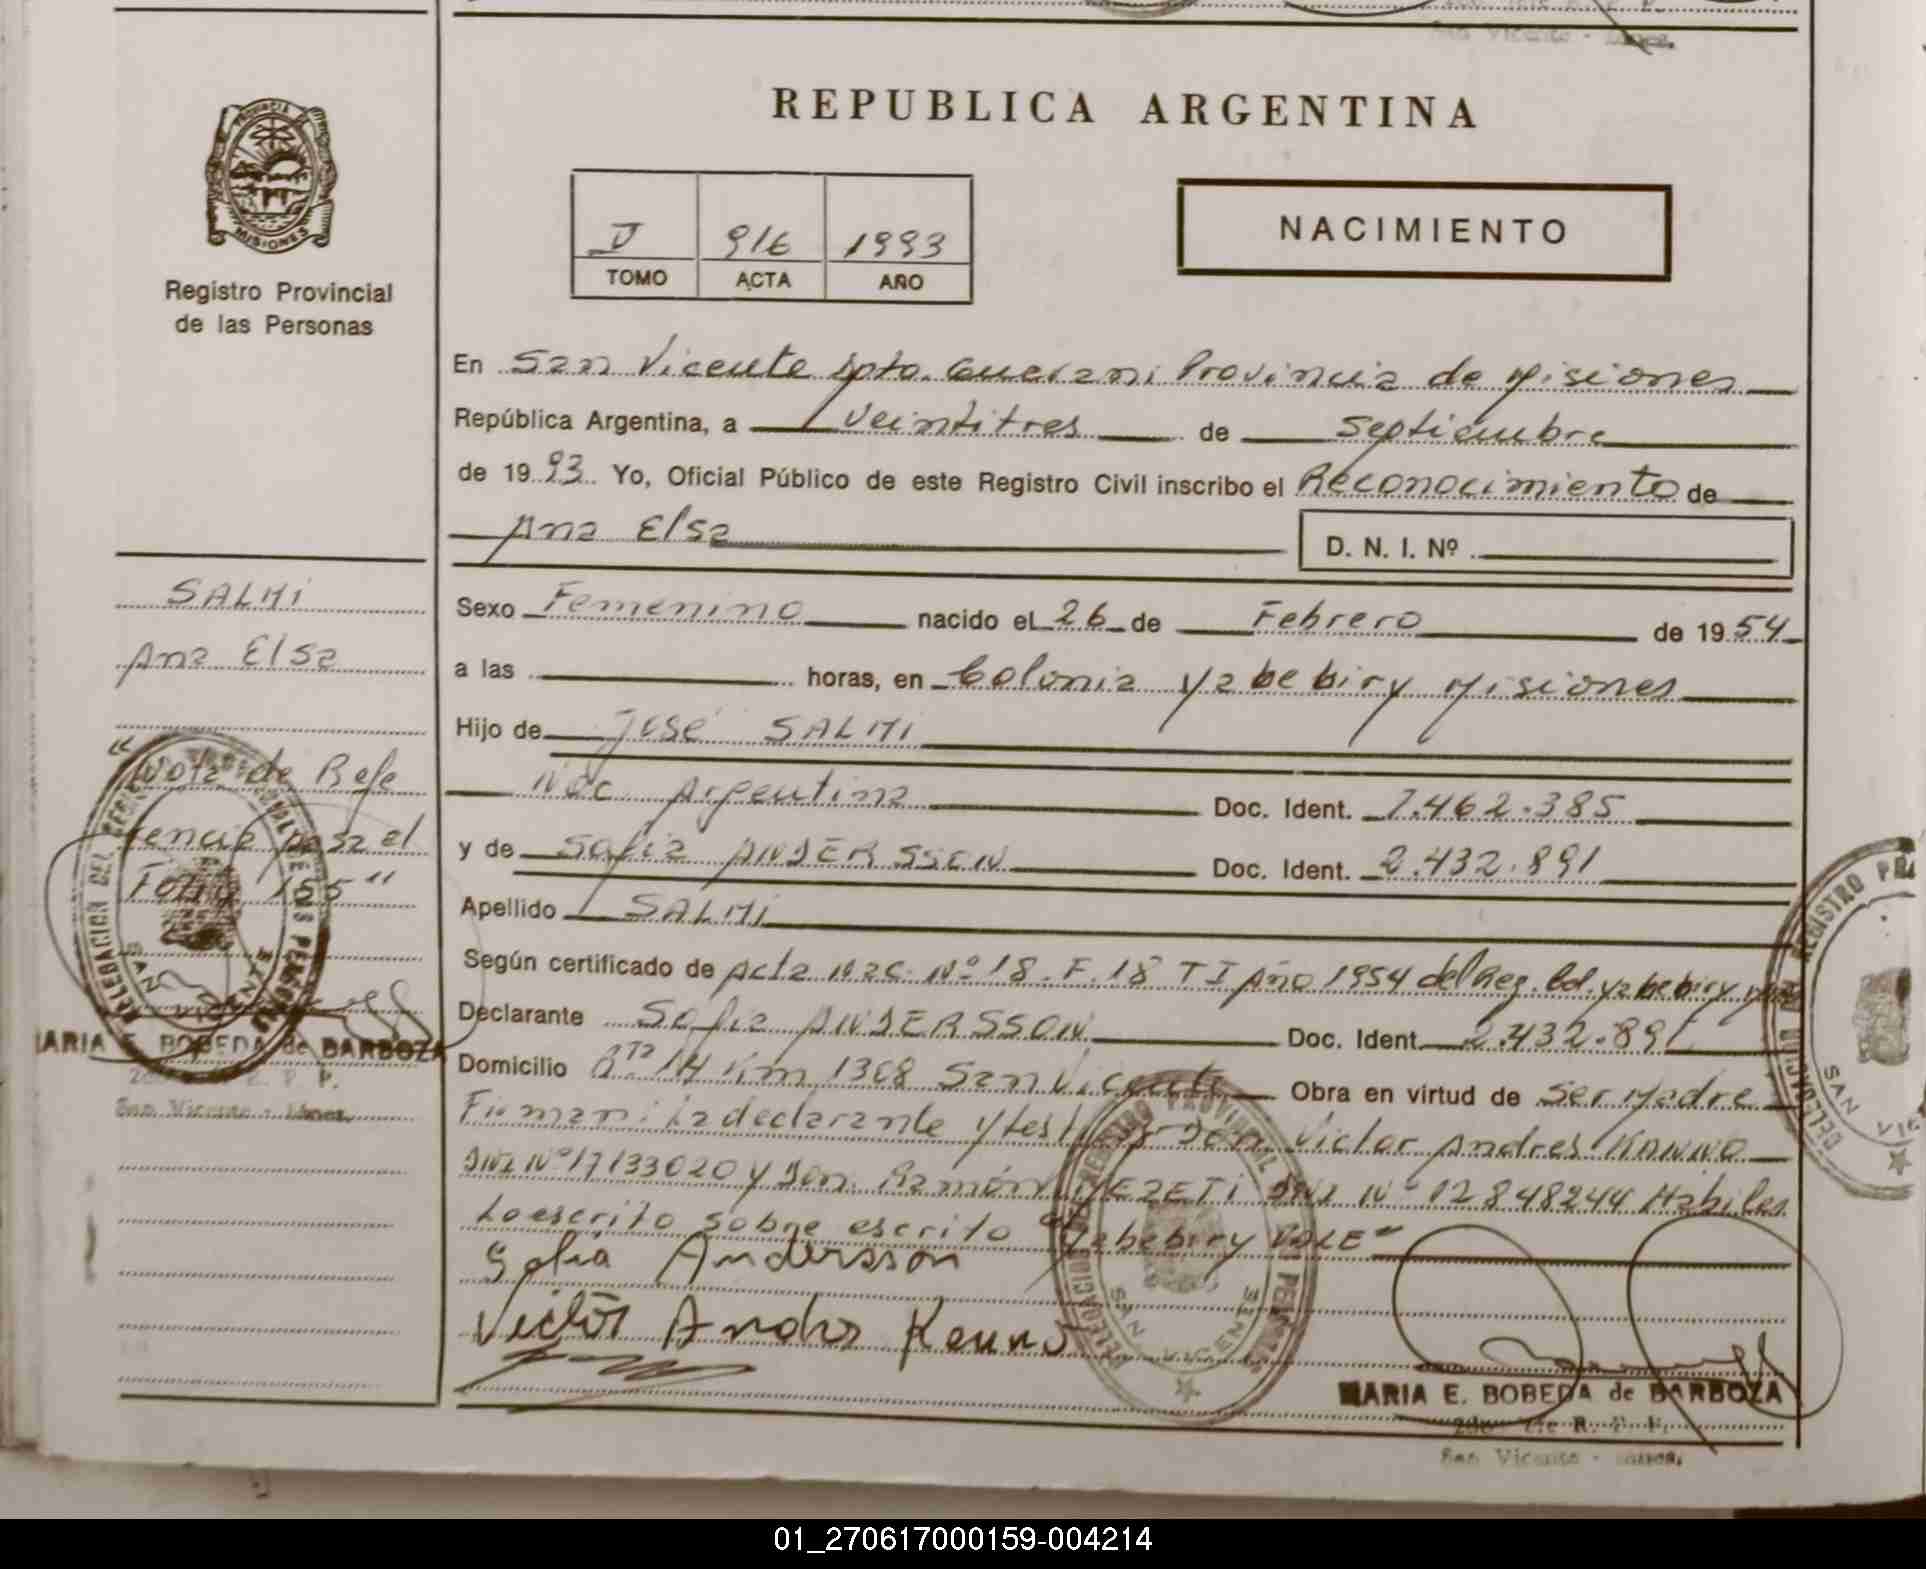 REPUBLICA ARGENTINA
PROVINCIA
MISIONES
Registro Provincial
de las Personas
V 916 1993
TOMO ACTA AÑO
NACIMIENTO
En San Vicente Dpto. Guarani Provincia de Misiones
República Argentina, a veintitres de septiembre
de 1993 Yo, Oficial Público de este Registro Civil inscribo el Reconocimiento de
Ana Elsa
D. N. I. Nº
Sexo Femenino nacido el 26 de Febrero de 1954
a las horas, en Colonia Yabebiry Misiones
Hijo de José SALMi
Nac. Argentina Doc. Ident. 7.462.385
y de Sofia ANDERSSON Doc. Ident. 2.432.891
Apellido SALMi
Según certificado de Acta Nac. Nº 18. F. 18 T I Año 1954 del Reg. Col. Yabebiry
Declarante Sofia ANDERSSON Doc. Ident. 2.432.891
Domicilio Rta 14 Km 1308 San Vicente Obra en virtud de Ser Madre
Firman: La declarante y testigos Don Victor Andres KANNO
DNI Nº 17133020 y Don Ramón DNI Nº 12848244 Habiles
Lo escrito sobre escrito "Yabebiry VALE"
Sofia Andersson
Victor Andres
MARIA E. BOBEDA de BARBOZA
San Vicente - Mnes.
SALMi
Ana Elsa
"Nota de Refe
rencia pasa el
Folio 155"
MARIA E. BOBEDA de BARBOZA
San Vicente - Mnes.
DELEGACION DEL REGISTRO PROVINCIAL DE LAS PERSONAS
SAN VICENTE
01_270617000159-004214